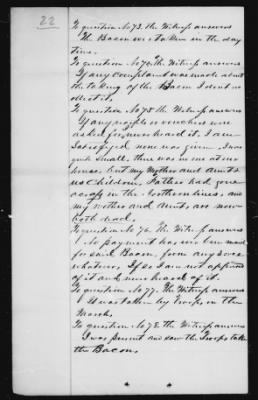 22
To question No 73. the Witness answers
The Bacon was taken in the day
time.
To question No 74. the Witness answers
If any complaint was made about
the taking of the Bacon I do not re
collect it.
To question No 75 the Witness answers
If any receipts or vouchers were
asked for, I never heard it. I am
satisfied none was given. I was
quite small, there was no one at our
house, but my Mother and Aunts &
us children. Father had gone
across in the Northern lines. and
my Mother and Aunts are now
both dead.
To question No 76. the Witness answers
No payment has ever been made
for said Bacon, from any source
whatever. If so I am not apprised
of it and never heard of it.
To question No 77. the Witness answers
It was taken by Troops on the
March.
To question No 78. the Witness answers
I was present and saw the Troops take
the Bacon.